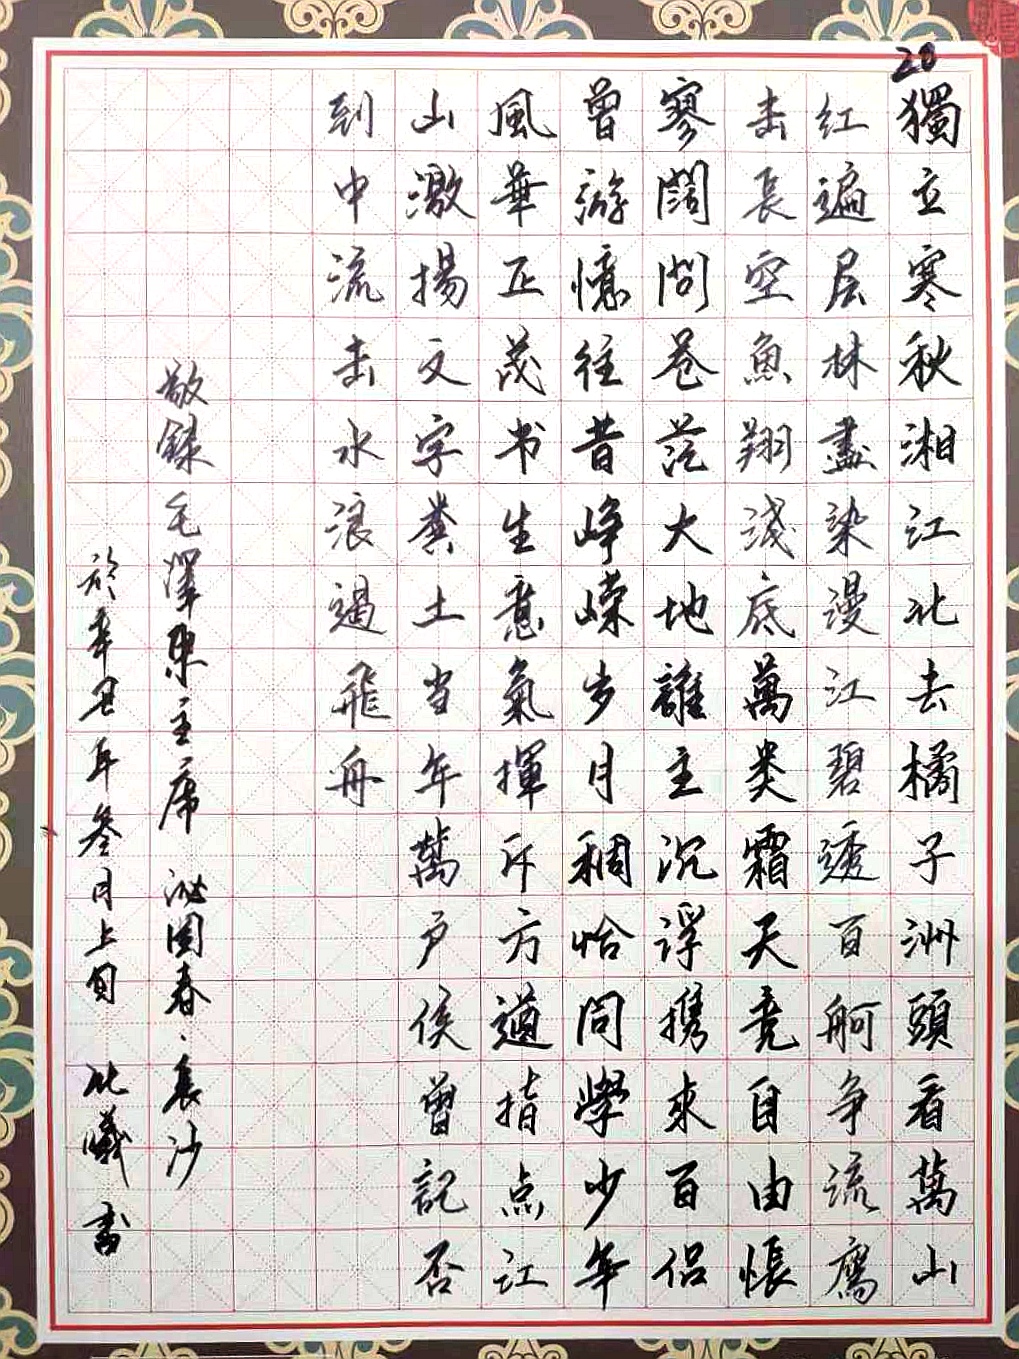 20
獨立寒秋湘江北去橘子洲頭看萬山
红遍层林盡染漫江碧透百舸争流鹰
击長空魚翔浅底萬类霜天竞自由悵
寥闊问苍茫大地誰主沉浮携來百侣
曾游憶往昔峥嵘岁月稠恰同學少年
風華正茂书生意氣揮斥方遒指点江
山激揚文字粪土当年萬户侯曾記否
到中流击水浪遏飛舟
敬録毛澤東主席 沁园春·長沙
於辛丑年叁月上旬 書